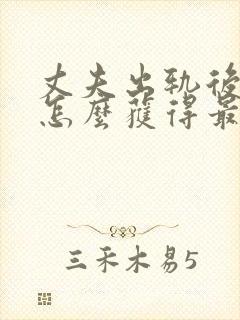 丈夫出轨後
怎麼獲得最
三禾木易5